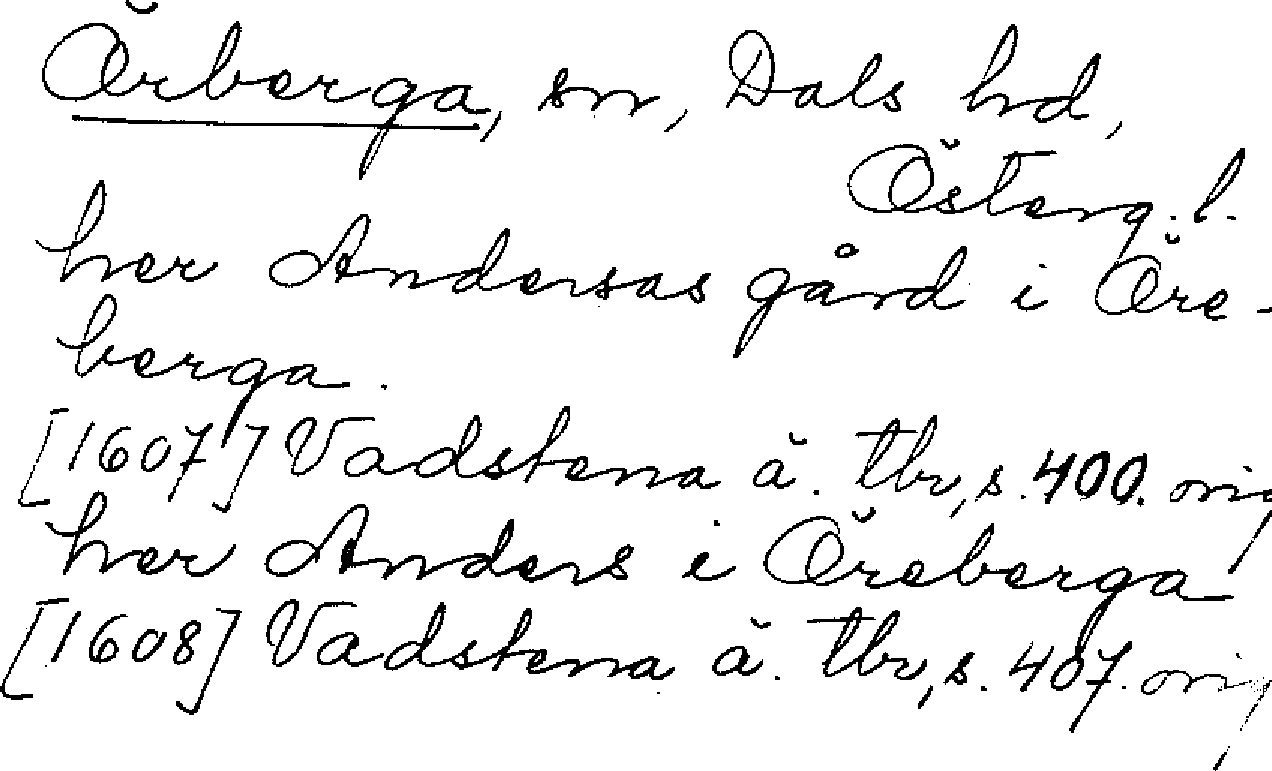 Örberga, sn, Dals hd,
Österg.l.
her Andersas gård i Öre-
berga.
[1607] Vadstena ä. tbr, s. 400. orig
her Anders i Öreberga
[1608] Vadstena ä. tbr, s. 407. orig